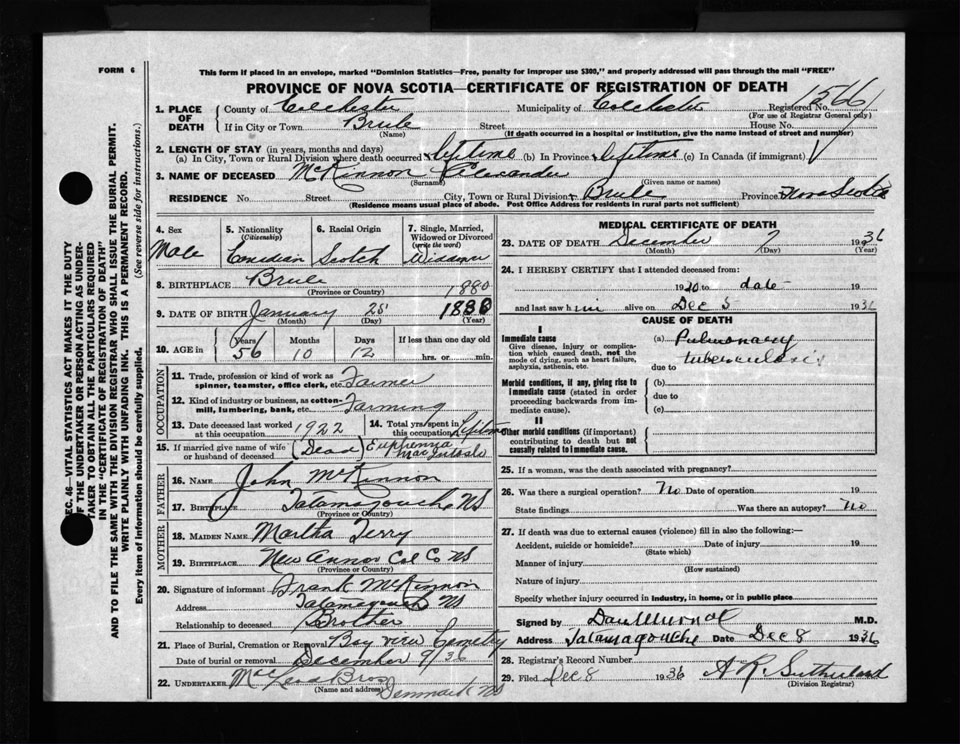 FORM 6
This form if placed in an envelope, marked "Dominion Statistics—Free, penalty for improper use $300," and properly addressed will pass through the mail "FREE"
PROVINCE OF NOVA SCOTIA—CERTIFICATE OF REGISTRATION OF DEATH
1. PLACE OF DEATH County of Colchester Municipality of Colchester Registered No. 1566
(For use of Registrar General only)
If in City or Town Brule Street House No.
(Name) (If death occurred in a hospital or institution, give the name instead of street and number)
2. LENGTH OF STAY (in years, months and days)
(a) In City, Town or Rural Division where death occurred lifetime (b) In Province lifetime (c) In Canada (if immigrant)
3. NAME OF DECEASED McKinnon Alexander
(Surname) (Given name or names)
RESIDENCE No. Street City, Town or Rural Division Brule Province Nova Scotia
(Residence means usual place of abode. Post Office Address for residents in rural parts not sufficient)
4. Sex Male
5. Nationality (Citizenship) Canadian
6. Racial Origin Scotch
7. Single, Married, Widowed or Divorced (write the word) Widower
8. BIRTHPLACE Brule
(Province or Country)
1880
9. DATE OF BIRTH January 25 1880
(Month) (Day) (Year)
10. AGE in Years 56 Months 10 Days 12 If less than one day old hrs. or min.
OCCUPATION
11. Trade, profession or kind of work as spinner, teamster, office clerk, etc. Farmer
12. Kind of industry or business, as cotton-mill, lumbering, bank, etc. Farming
13. Date deceased last worked at this occupation 1922
14. Total yrs. spent in this occupation Lifetime
15. If married give name of wife or husband of deceased (Dead) Euphemia MacIntosh
FATHER
16. NAME John McKinnon
17. BIRTHPLACE Tatamagouche NS
(Province or Country)
MOTHER
18. MAIDEN NAME Martha Terry
19. BIRTHPLACE New Annan Col Co NS
(Province or Country)
20. Signature of informant Frank McKinnon
Address Tatamagouche NS
Relationship to deceased Brother
21. Place of Burial, Cremation or Removal Bay View Cemetery
Date of burial or removal December 9/36
22. UNDERTAKER Bros Denmark NS
(Name and address)
MEDICAL CERTIFICATE OF DEATH
23. DATE OF DEATH December 7 1936
(Month) (Day) (Year)
24. I HEREBY CERTIFY that I attended deceased from:
1920 to date 19
and last saw him alive on Dec 5 1936
CAUSE OF DEATH
I
Immediate cause
Give disease, injury or complication which caused death, not the mode of dying, such as heart failure, asphyxia, asthenia, etc.
(a) Pulmonary tuberculosis
due to
Morbid conditions, if any, giving rise to immediate cause (stated in order proceeding backwards from immediate cause).
(b)
due to
(c)
II
Other morbid conditions (if important) contributing to death but not causally related to immediate cause.
25. If a woman, was the death associated with pregnancy?
26. Was there a surgical operation? No Date of operation 19
State findings Was there an autopsy? No
27. If death was due to external causes (violence) fill in also the following:—
Accident, suicide or homicide? Date of injury 19
(State which)
Manner of injury
(How sustained)
Nature of injury
Specify whether injury occurred in industry, in home, or in public place
Signed by Dan Murray M.D.
Address Tatamagouche Date Dec 8 1936
28. Registrar's Record Number
29. Filed Dec 8 1936 A R Sutherland
(Division Registrar)
SEC. 46—VITAL STATISTICS ACT MAKES IT THE DUTY
OF THE UNDERTAKER OR PERSON ACTING AS UNDER-
TAKER TO OBTAIN ALL THE PARTICULARS REQUIRED
IN THE "CERTIFICATE OF REGISTRATION OF DEATH"
AND TO FILE THE SAME WITH THE DIVISION REGISTRAR WHO SHALL ISSUE THE BURIAL PERMIT.
WRITE PLAINLY WITH UNFADING INK. THIS IS A PERMANENT RECORD.
Every item of information should be carefully supplied. (See reverse side for instructions.)